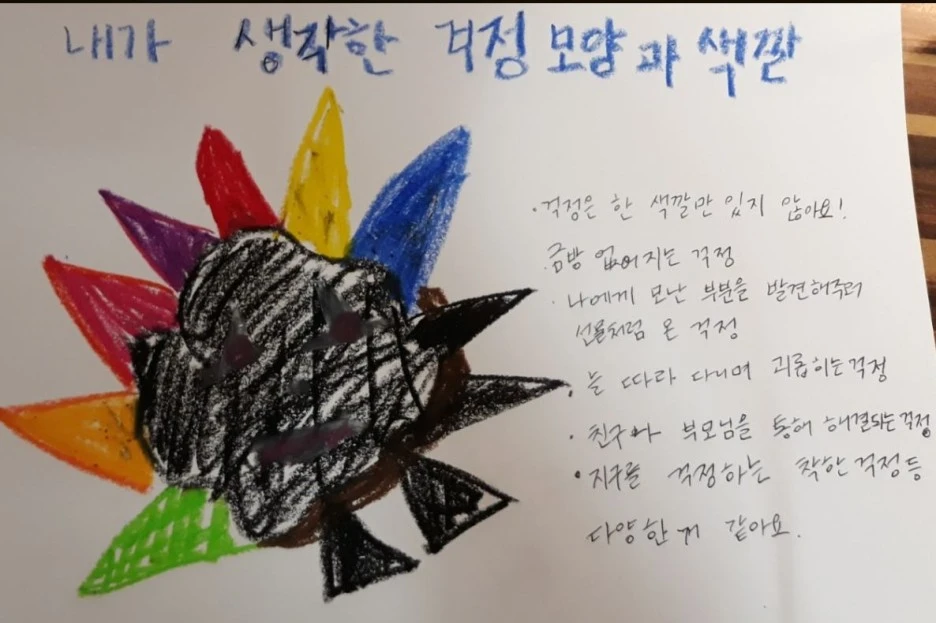 내가 생각한 걱정 모양과 색깔
· 걱정은 한 색깔만 있지 않아요!
금방 없어지는 걱정
· 나에게 모난 부분을 발견해주려
선물처럼 온 걱정
· 늘 따라 다니며 괴롭히는 걱정
· 친구나 부모님을 통해 해결되는 걱정
· 지구를 걱정하는 착한 걱정 등
다양한 거 같아요.